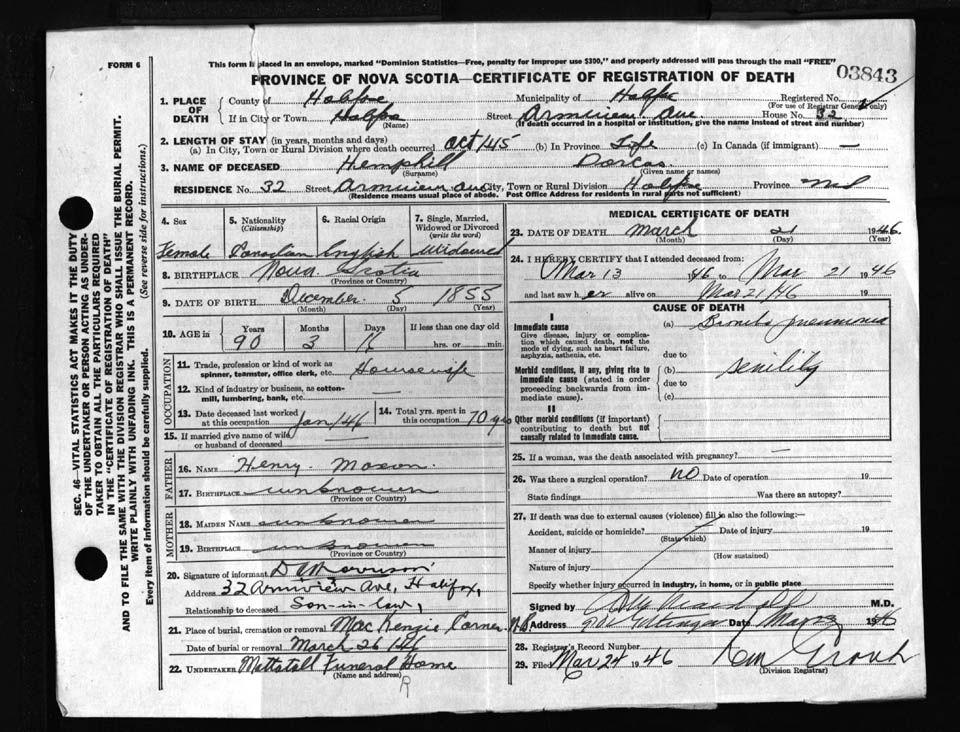 FORM 6
This form if placed in an envelope, marked "Dominion Statistics—Free, penalty for improper use $300," and properly addressed will pass through the mail "FREE"
PROVINCE OF NOVA SCOTIA—CERTIFICATE OF REGISTRATION OF DEATH
03843
1. PLACE OF DEATH
County of Halifax Municipality of Halifax Registered No.
(For use of Registrar General only)
If in City or Town Halifax Street Armview Ave. House No. 32
(Name) (If death occurred in a hospital or institution, give the name instead of street and number)
2. LENGTH OF STAY (in years, months and days)
(a) In City, Town or Rural Division where death occurred Oct/45 (b) In Province Life (c) In Canada (if immigrant) —
3. NAME OF DECEASED Hemphill Dorcas.
(Surname) (Given name or names)
RESIDENCE No. 32 Street Armview Ave City, Town or Rural Division Halifax Province
(Residence means usual place of abode. Post Office Address for residents in rural parts not sufficient)
4. Sex
Female
5. Nationality
(Citizenship)
Canadian
6. Racial Origin
English
7. Single, Married, Widowed or Divorced
(write the word)
Widowed
8. BIRTHPLACE Nova Scotia
(Province or Country)
9. DATE OF BIRTH December 5 1855
(Month) (Day) (Year)
10. AGE in Years Months Days If less than one day old
90 3 hrs. or min.
OCCUPATION
11. Trade, profession or kind of work as spinner, teamster, office clerk, etc. Housewife
12. Kind of industry or business, as cotton-mill, lumbering, bank, etc. —
13. Date deceased last worked at this occupation Jan/46
14. Total yrs. spent in this occupation 70 yrs
15. If married give name of wife or husband of deceased
FATHER
16. NAME Henry Mason.
17. BIRTHPLACE unknown
(Province or Country)
MOTHER
18. MAIDEN NAME unknown
19. BIRTHPLACE unknown
(Province or Country)
20. Signature of informant D A Morrison
Address 32 Armview Ave, Halifax,
Relationship to deceased Son-in-law,
21. Place of burial, cremation or removal MacKenzie Corner N.B.
Date of burial or removal March 26/46
22. UNDERTAKER Mattatall Funeral Home
(Name and address)
MEDICAL CERTIFICATE OF DEATH
23. DATE OF DEATH March 21 1946.
(Month) (Day) (Year)
24. I HEREBY CERTIFY that I attended deceased from:
Mar 13 1946 to Mar 21 1946
and last saw her alive on Mar 21/46 19
CAUSE OF DEATH
I
Immediate cause
Give disease, injury or complication which caused death, not the mode of dying, such as heart failure, asphyxia, asthenia, etc.
(a) Broncho pneumonia
due to
Morbid conditions, if any, giving rise to immediate cause (stated in order proceeding backwards from immediate cause).
(b) senility
due to
(c)
II
Other morbid conditions (if important) contributing to death but not causally related to immediate cause.
25. If a woman, was the death associated with pregnancy? —
26. Was there a surgical operation? no Date of operation 19
State findings Was there an autopsy?
27. If death was due to external causes (violence) fill in also the following:—
Accident, suicide or homicide? Date of injury 19
(State which)
Manner of injury
(How sustained)
Nature of injury
Specify whether injury occurred in industry, in home, or in public place
Signed by M.D.
Address Date Mar 23 1946
28. Registrar's Record Number
29. Filed Mar 24 1946
(Division Registrar)
SEC. 46—VITAL STATISTICS ACT MAKES IT THE DUTY
OF THE UNDERTAKER OR PERSON ACTING AS UNDER-
TAKER TO OBTAIN ALL THE PARTICULARS REQUIRED
IN THE "CERTIFICATE OF REGISTRATION OF DEATH"
AND TO FILE THE SAME WITH THE DIVISION REGISTRAR WHO SHALL ISSUE THE BURIAL PERMIT.
WRITE PLAINLY WITH UNFADING INK. THIS IS A PERMANENT RECORD.
Every item of information should be carefully supplied. (See reverse side for instructions.)